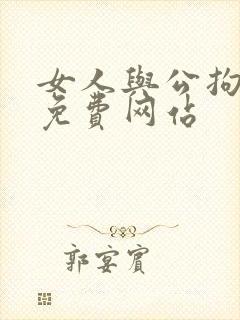 女人與公拘
免費网佔
郭宴賓